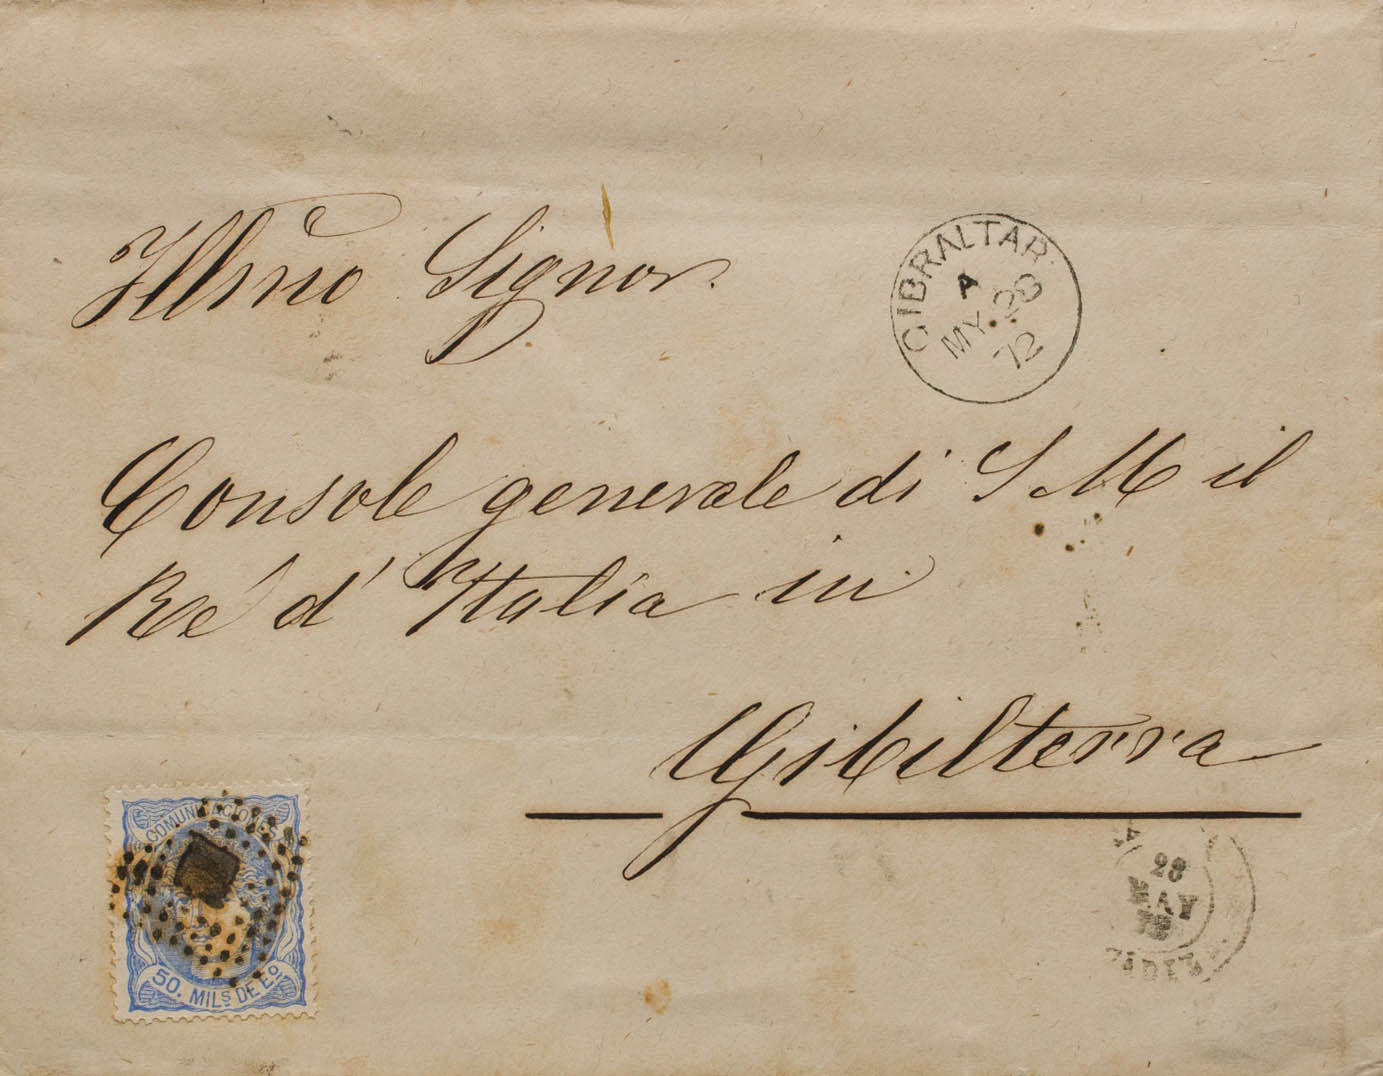 Illmo Signor.
GIBRALTAR
A
MY 28
72
Console generale di S M il
Ré d'Italia in
Gibilterra
COMUNICACIONES
50. MILS DE EO
28
MAY
72
CADIZ